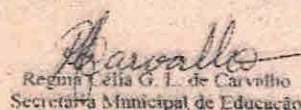 RCarvalho
Regina Célia G. L. de Carvalho
Secretária Municipal de Educação